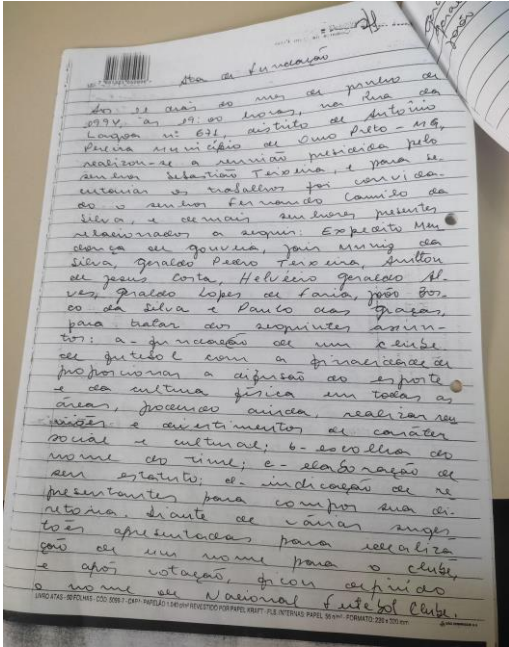 Ata de fundação
As 11 dias do mes de junho de
1994, as 19:00 horas, na Rua da
Lagoa nº 671, distrito de Antônio
Pereira Município de Ouro Preto - MG,
realizou-se a reunião presidida pelo
senhor Sebastião Teixeira, e para se-
cretariar os trabalhos foi convida-
do o senhor Fernando Camilo da
Silva, e demais senhores presentes
relacionados a seguir: Expedito Men
donça de Gouveia, Jair Muniz da
Silva, Geraldo Pedro Teixeira, Amilton
de Jesus Costa, Helvécio Geraldo Al-
ves, Geraldo Lopes de Faria, João Bos-
co da Silva e Paulo das Graças,
para tratar dos seguintes assun-
tos: a - fundação de um clube
de futebol com a finalidade de
proporcionar a difusão do esporte
e da cultura física em todas as
áreas, podendo ainda, realizar reu
niões e divertimentos de caráter
social e cultural; b - escolha do
nome do time; c - elaboração de
seu estatuto; d - indicação de re
presentantes para compor sua di-
retoria. Diante de várias suges
tões apresentadas para idealiza
ção de um nome para o clube,
e após votação, ficou definido
o nome de Nacional Futebol Clube.
LIVRO ATAS - 50 FOLHAS - CÓD. 5099-7 - CAPA: PAPELÃO REVESTIDO POR PAPEL KRAFT - FLS. INTERNAS: PAPEL 56 g/m² - FORMATO: